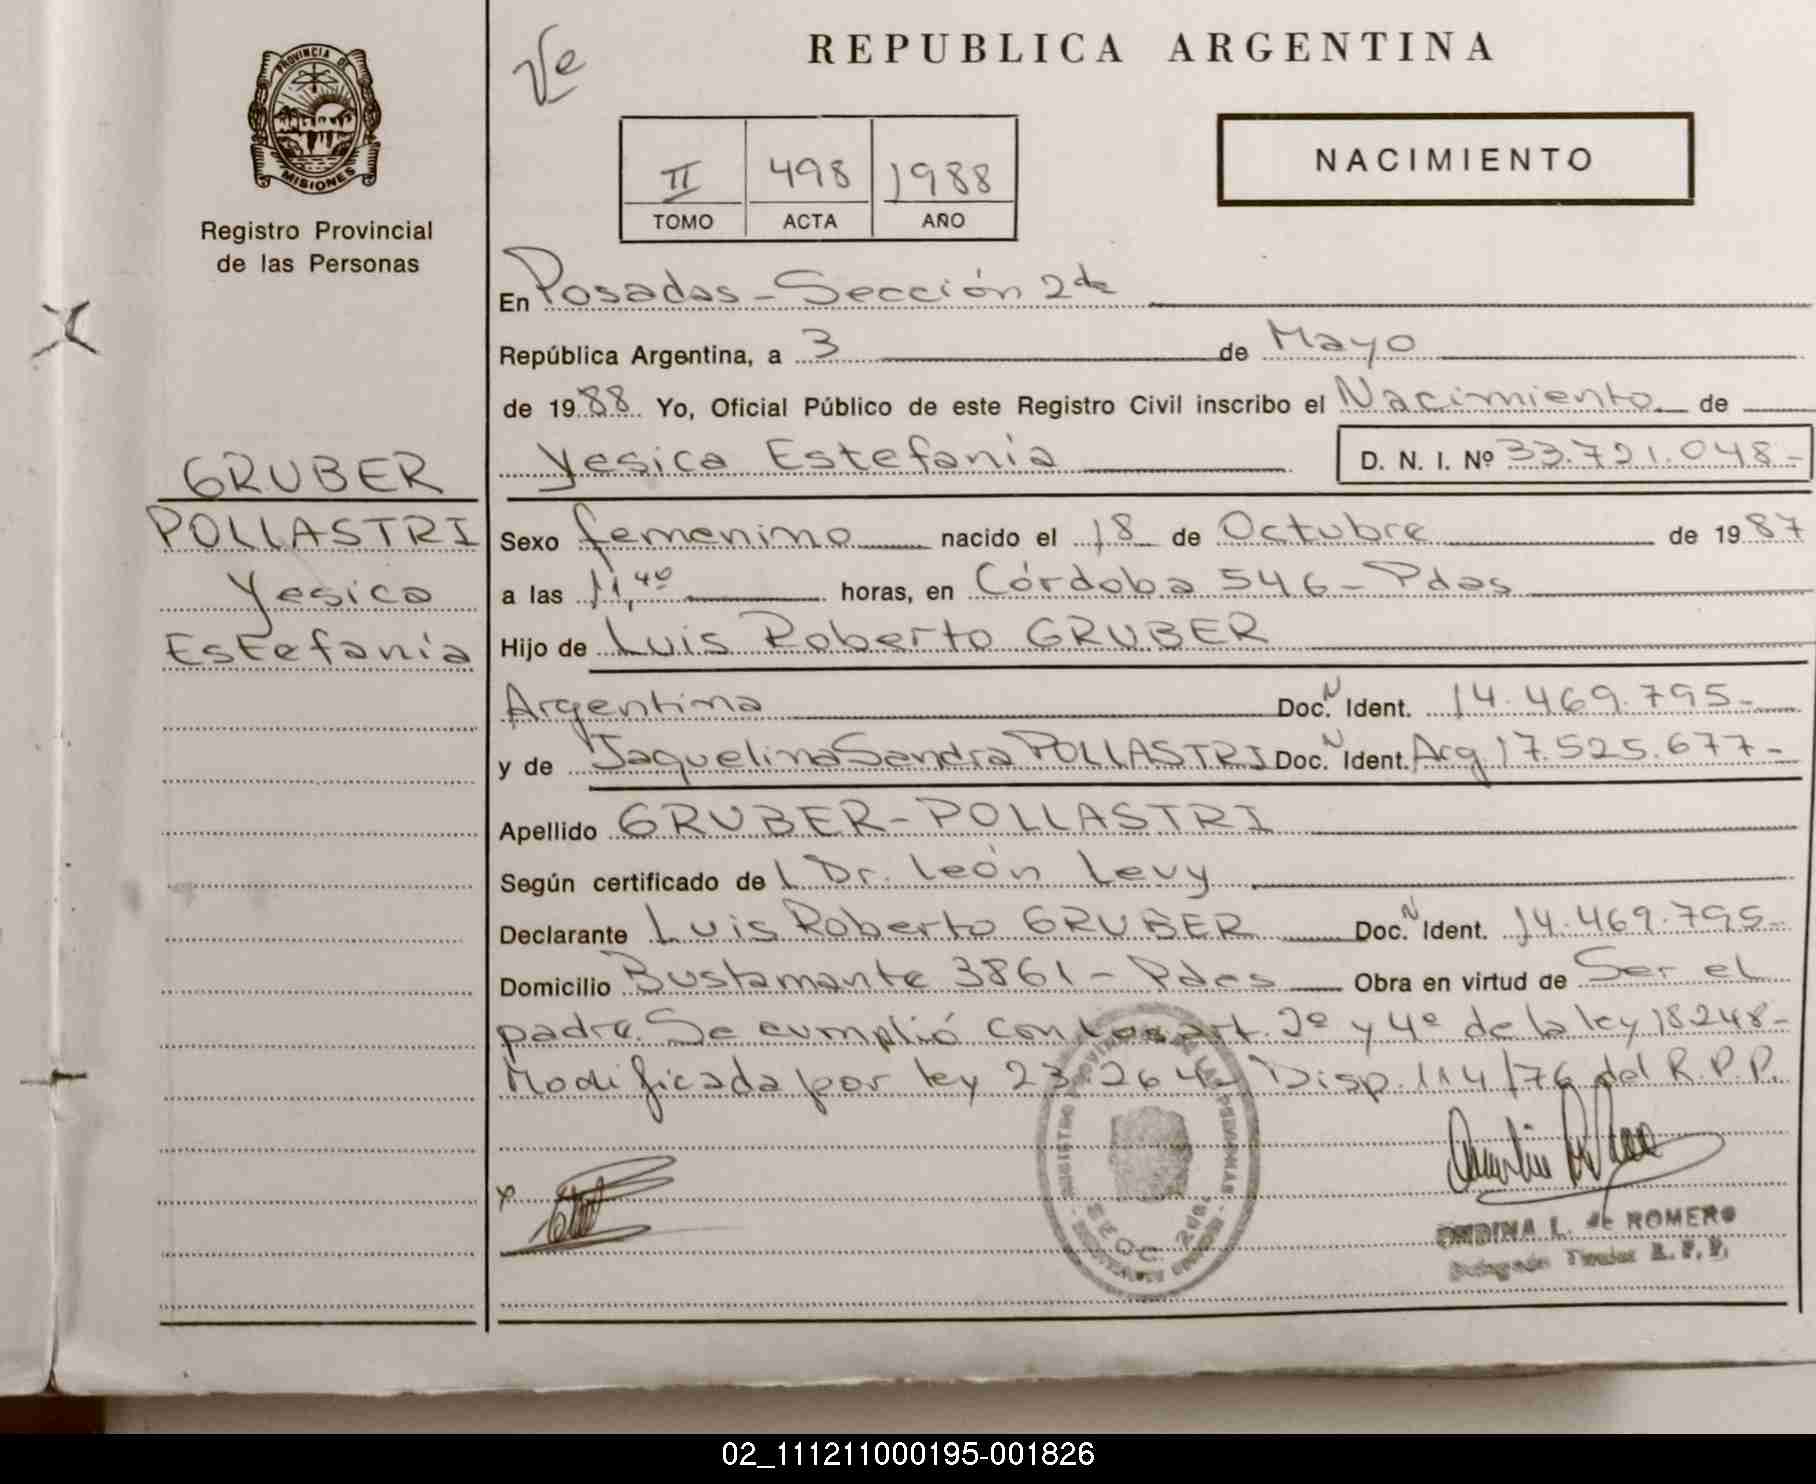 Ve
REPUBLICA ARGENTINA
PROVINCIA DE MISIONES
Registro Provincial
de las Personas
II 498 1988
TOMO ACTA AÑO
NACIMIENTO
En Posadas - Sección 2da
República Argentina, a 3 de Mayo
de 1988 Yo, Oficial Público de este Registro Civil inscribo el Nacimiento de
Yesica Estefanía D. N. I. Nº 33.721.048-
GRUBER
POLLASTRI
Yesica
Estefanía
Sexo femenino nacido el 18 de Octubre de 1987
a las 11,40 horas, en Córdoba 546 - Pdas
Hijo de Luis Roberto GRUBER
Argentina Doc. N Ident. 14.469.795-
y de Jaquelina Sandra POLLASTRI Doc. N Ident. Arg 17.525.677-
Apellido GRUBER-POLLASTRI
Según certificado de l Dr. León Levy
Declarante Luis Roberto GRUBER Doc. N Ident. 14.469.795-
Domicilio Bustamante 3861 - Pdas Obra en virtud de Ser el
padre. Se cumplió con los art. 2º y 4º de la ley 18248-
Modificada por ley 23.264- Disp. 114/76 del R.P.P.
ONDINA L. de ROMERO
Titular R. P. P.
02_111211000195-001826